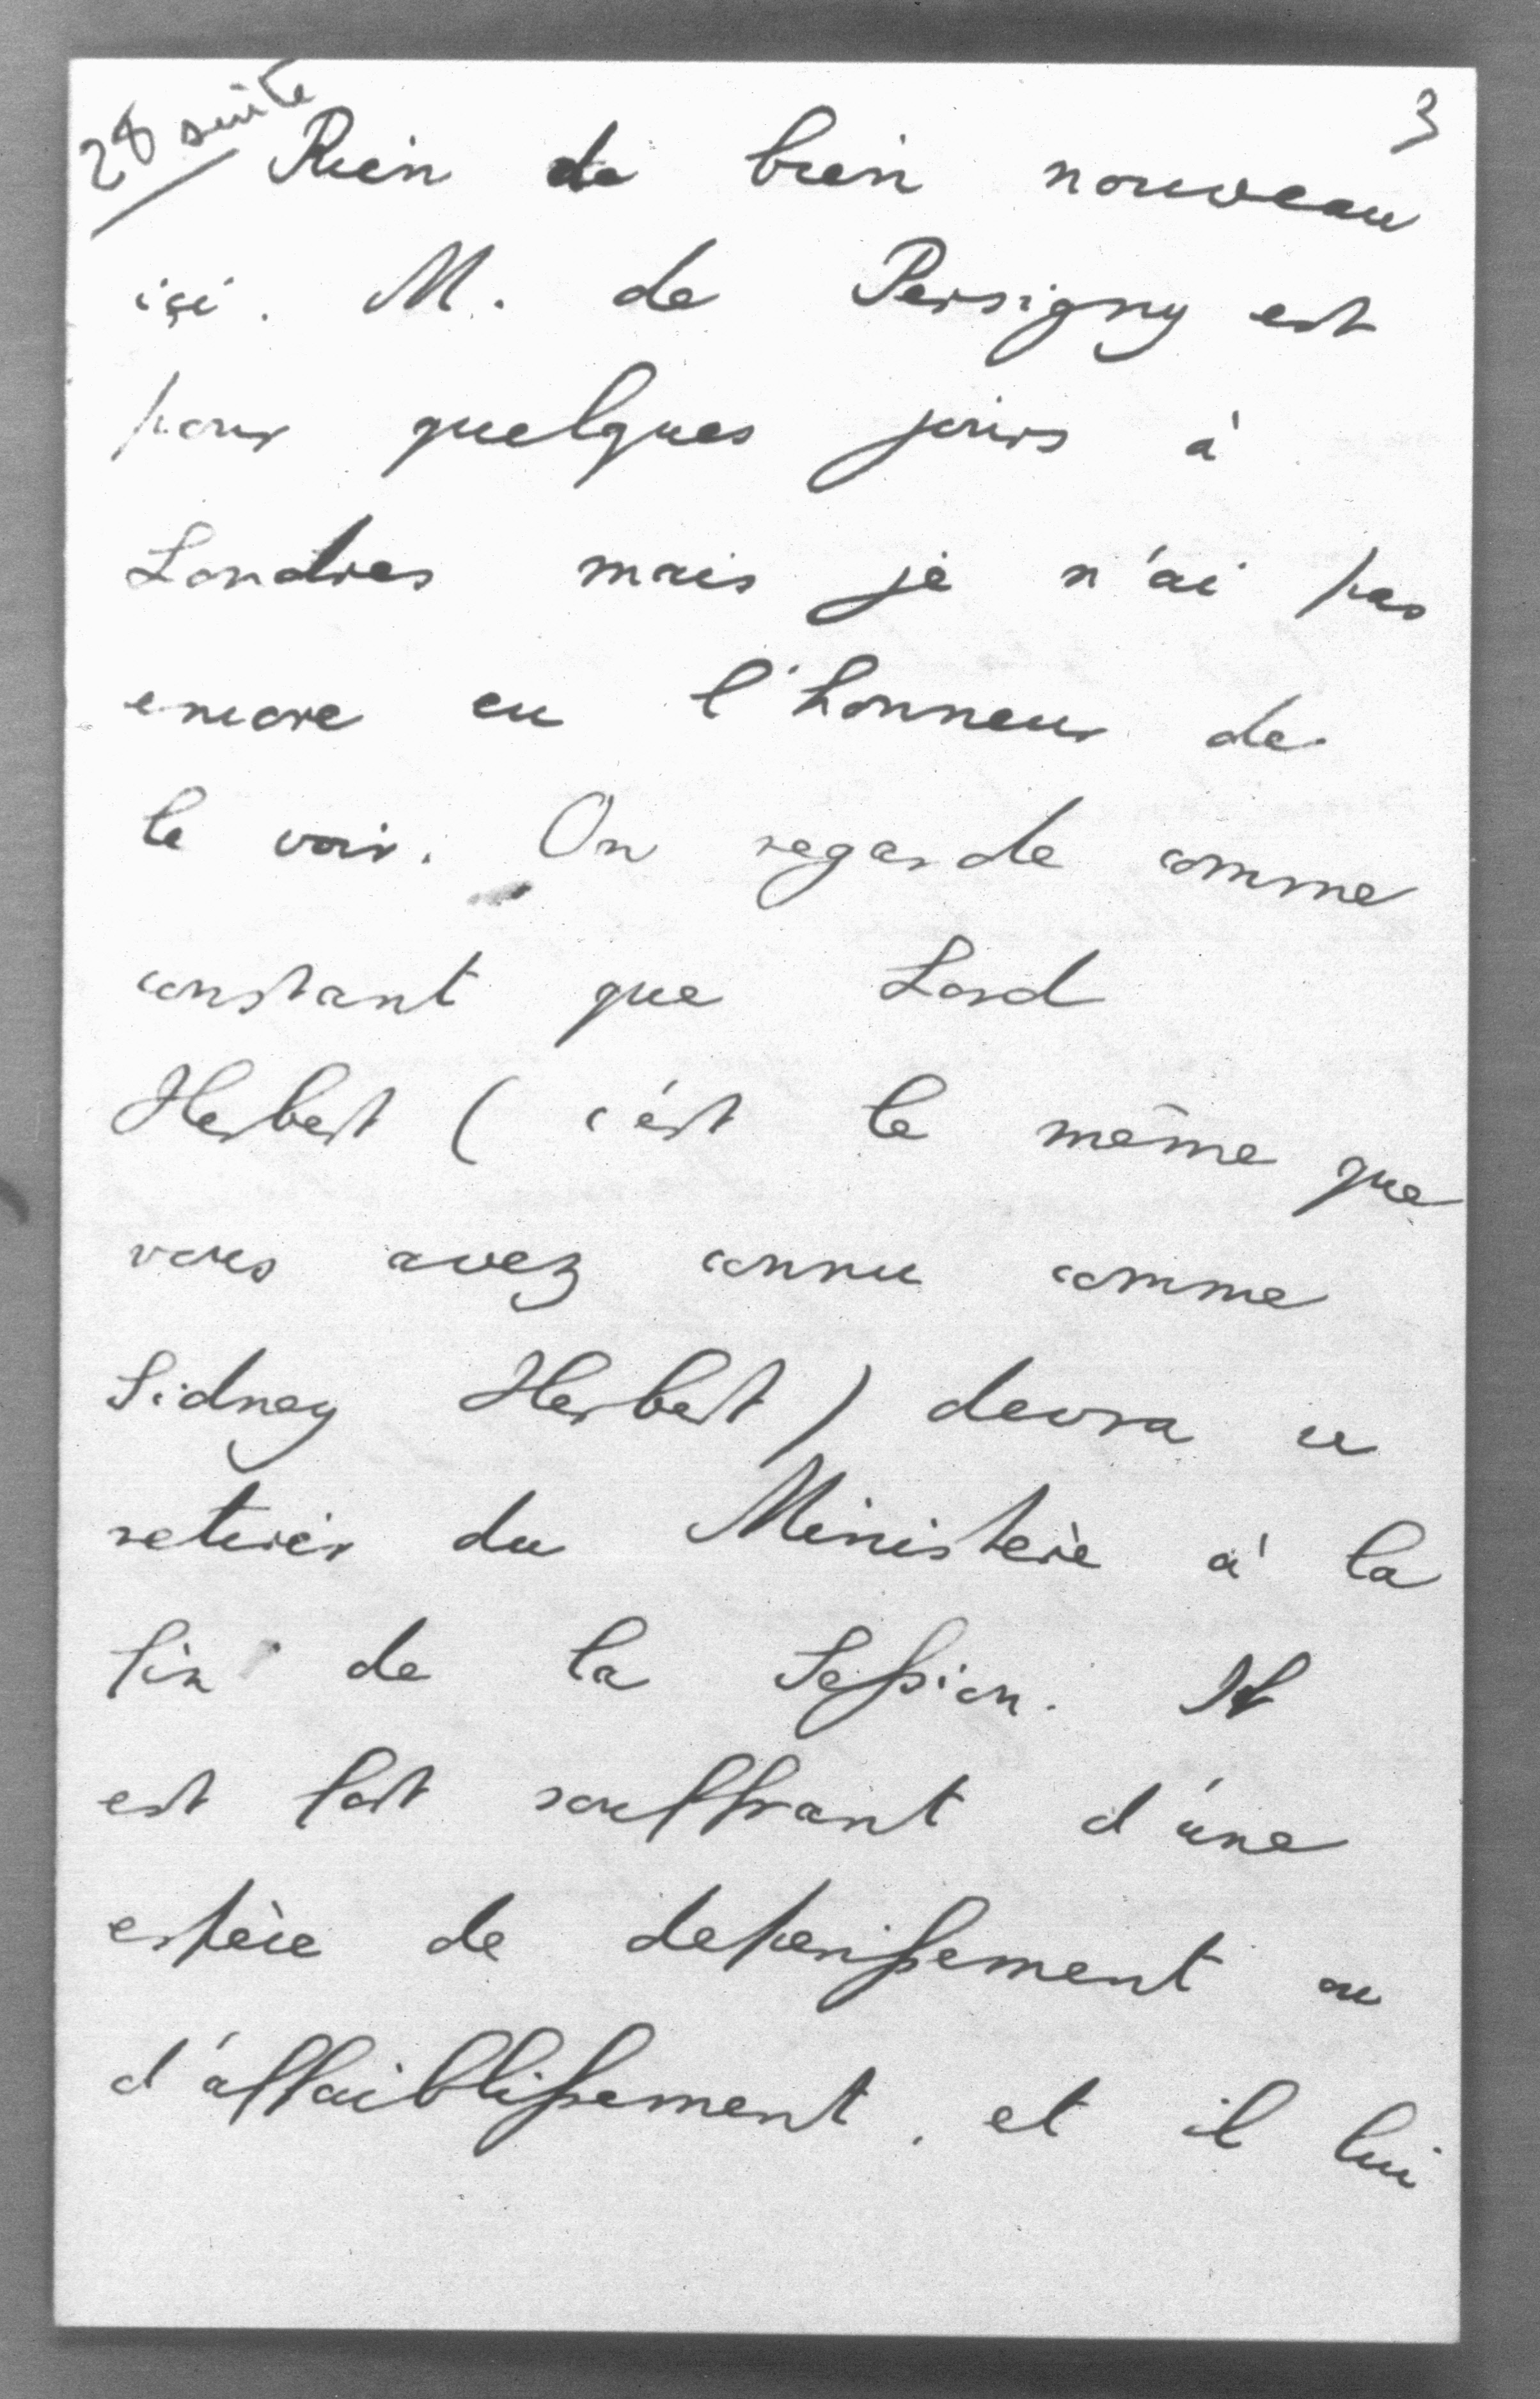 28 suite
3
Rien de bien nouveau
içi. M. de Persigny est
pour quelques jours à
Londres mais je n'ai pas
encore eu l'honneur de
le voir. On regarde comme
constant que Lord
Herbert (c'est le même que
vous avez connu comme
Sidney Herbert) devra se
retirer du Ministère à la
fin de la Session. Il
est fort souffrant d'une
espèce de deperissement ou
d'affaiblissement, et il lui